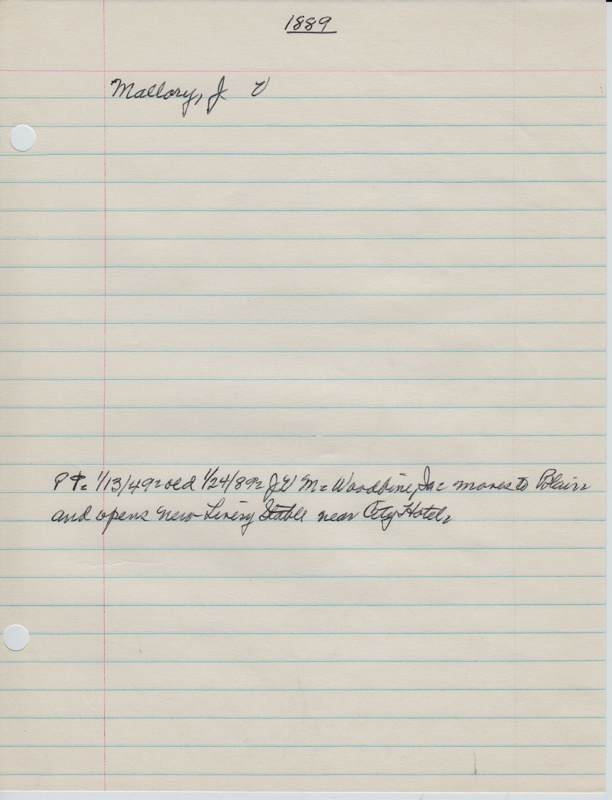 1889
Mallory, J V
PT= 1/13/49=old 1/24/89= J V M= Woodbine, Ia= moves to Blair=
and opens new Livery Stable near City Hotel=